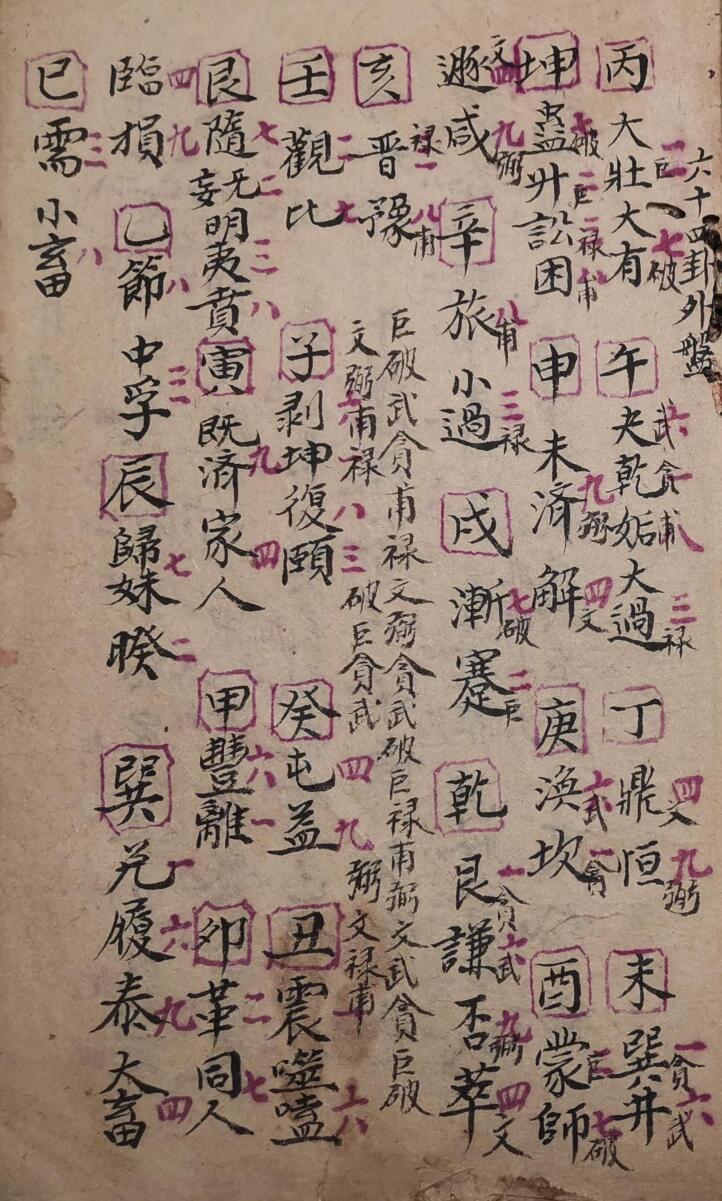 六十四卦外盤
二巨七破六武一貪八甫三禄四文九弼一貪六武
丙大壯大有午夬乾姤大過丁鼎恒未巽井
七破二巨三禄八甫九弼四文六武一貪二巨七破
坤蠱升訟困申未済解庚渙坎酉蒙師
文四九弼八甫三禄七破二巨一貪六武九弼四文
遯咸辛旅小過戌漸蹇乾艮謙否萃
禄三八甫
亥晋豫
巨破武貪甫禄文弼貪武破巨禄甫弼文武貪巨破
文弼甫禄破巨貪武弼文禄甫
二七八三四九六八
壬觀比子剥坤復頤癸屯益丑震噬嗑
七二三八九四六一二七
艮隨无妄明夷賁寅既済家人甲豐離卯革同人
四九八三七二一六九四
臨損乙節中孚辰歸妹睽巽兌履泰大畜
三八
巳需小畜